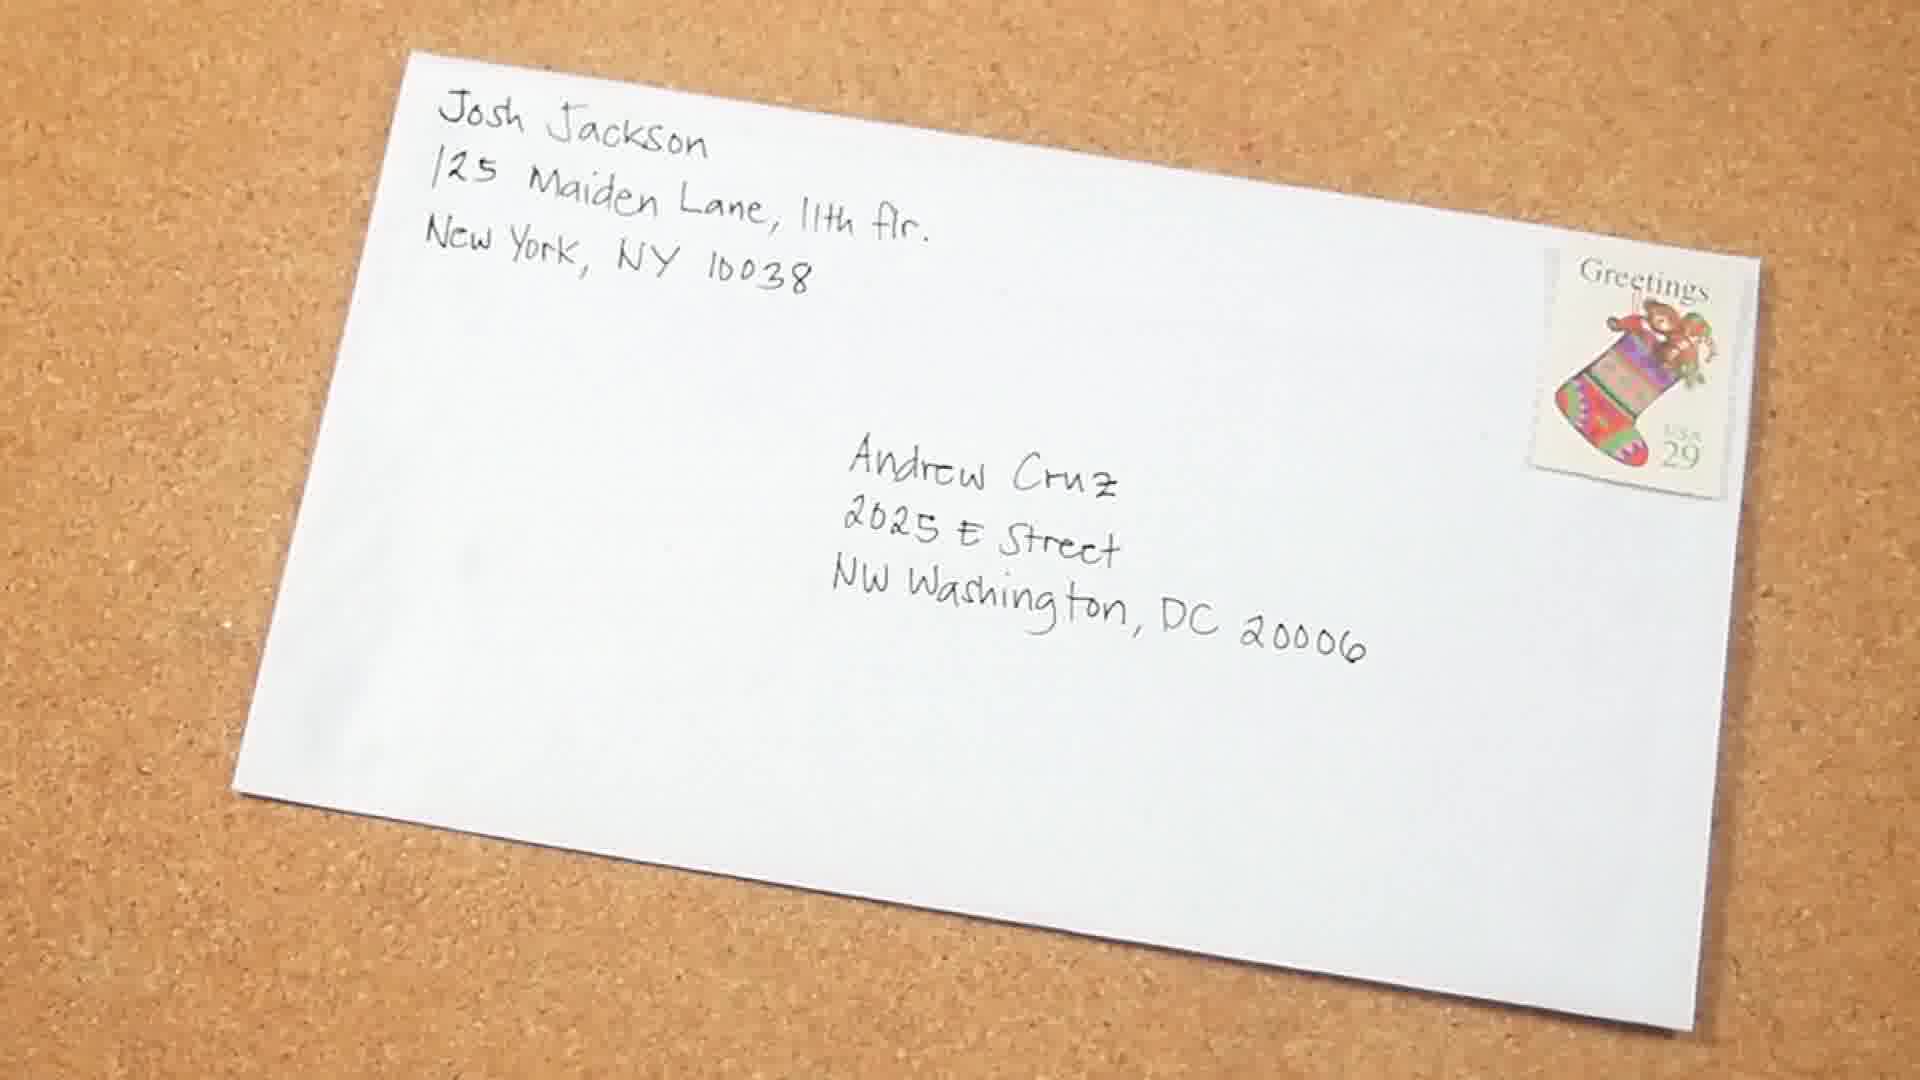 Josh Jackson
125 Maiden Lane, 11th flr.
New York, NY 10038
Greetings
USA
29
Andrew Cruz
2025 E Street
NW Washington, DC 20006